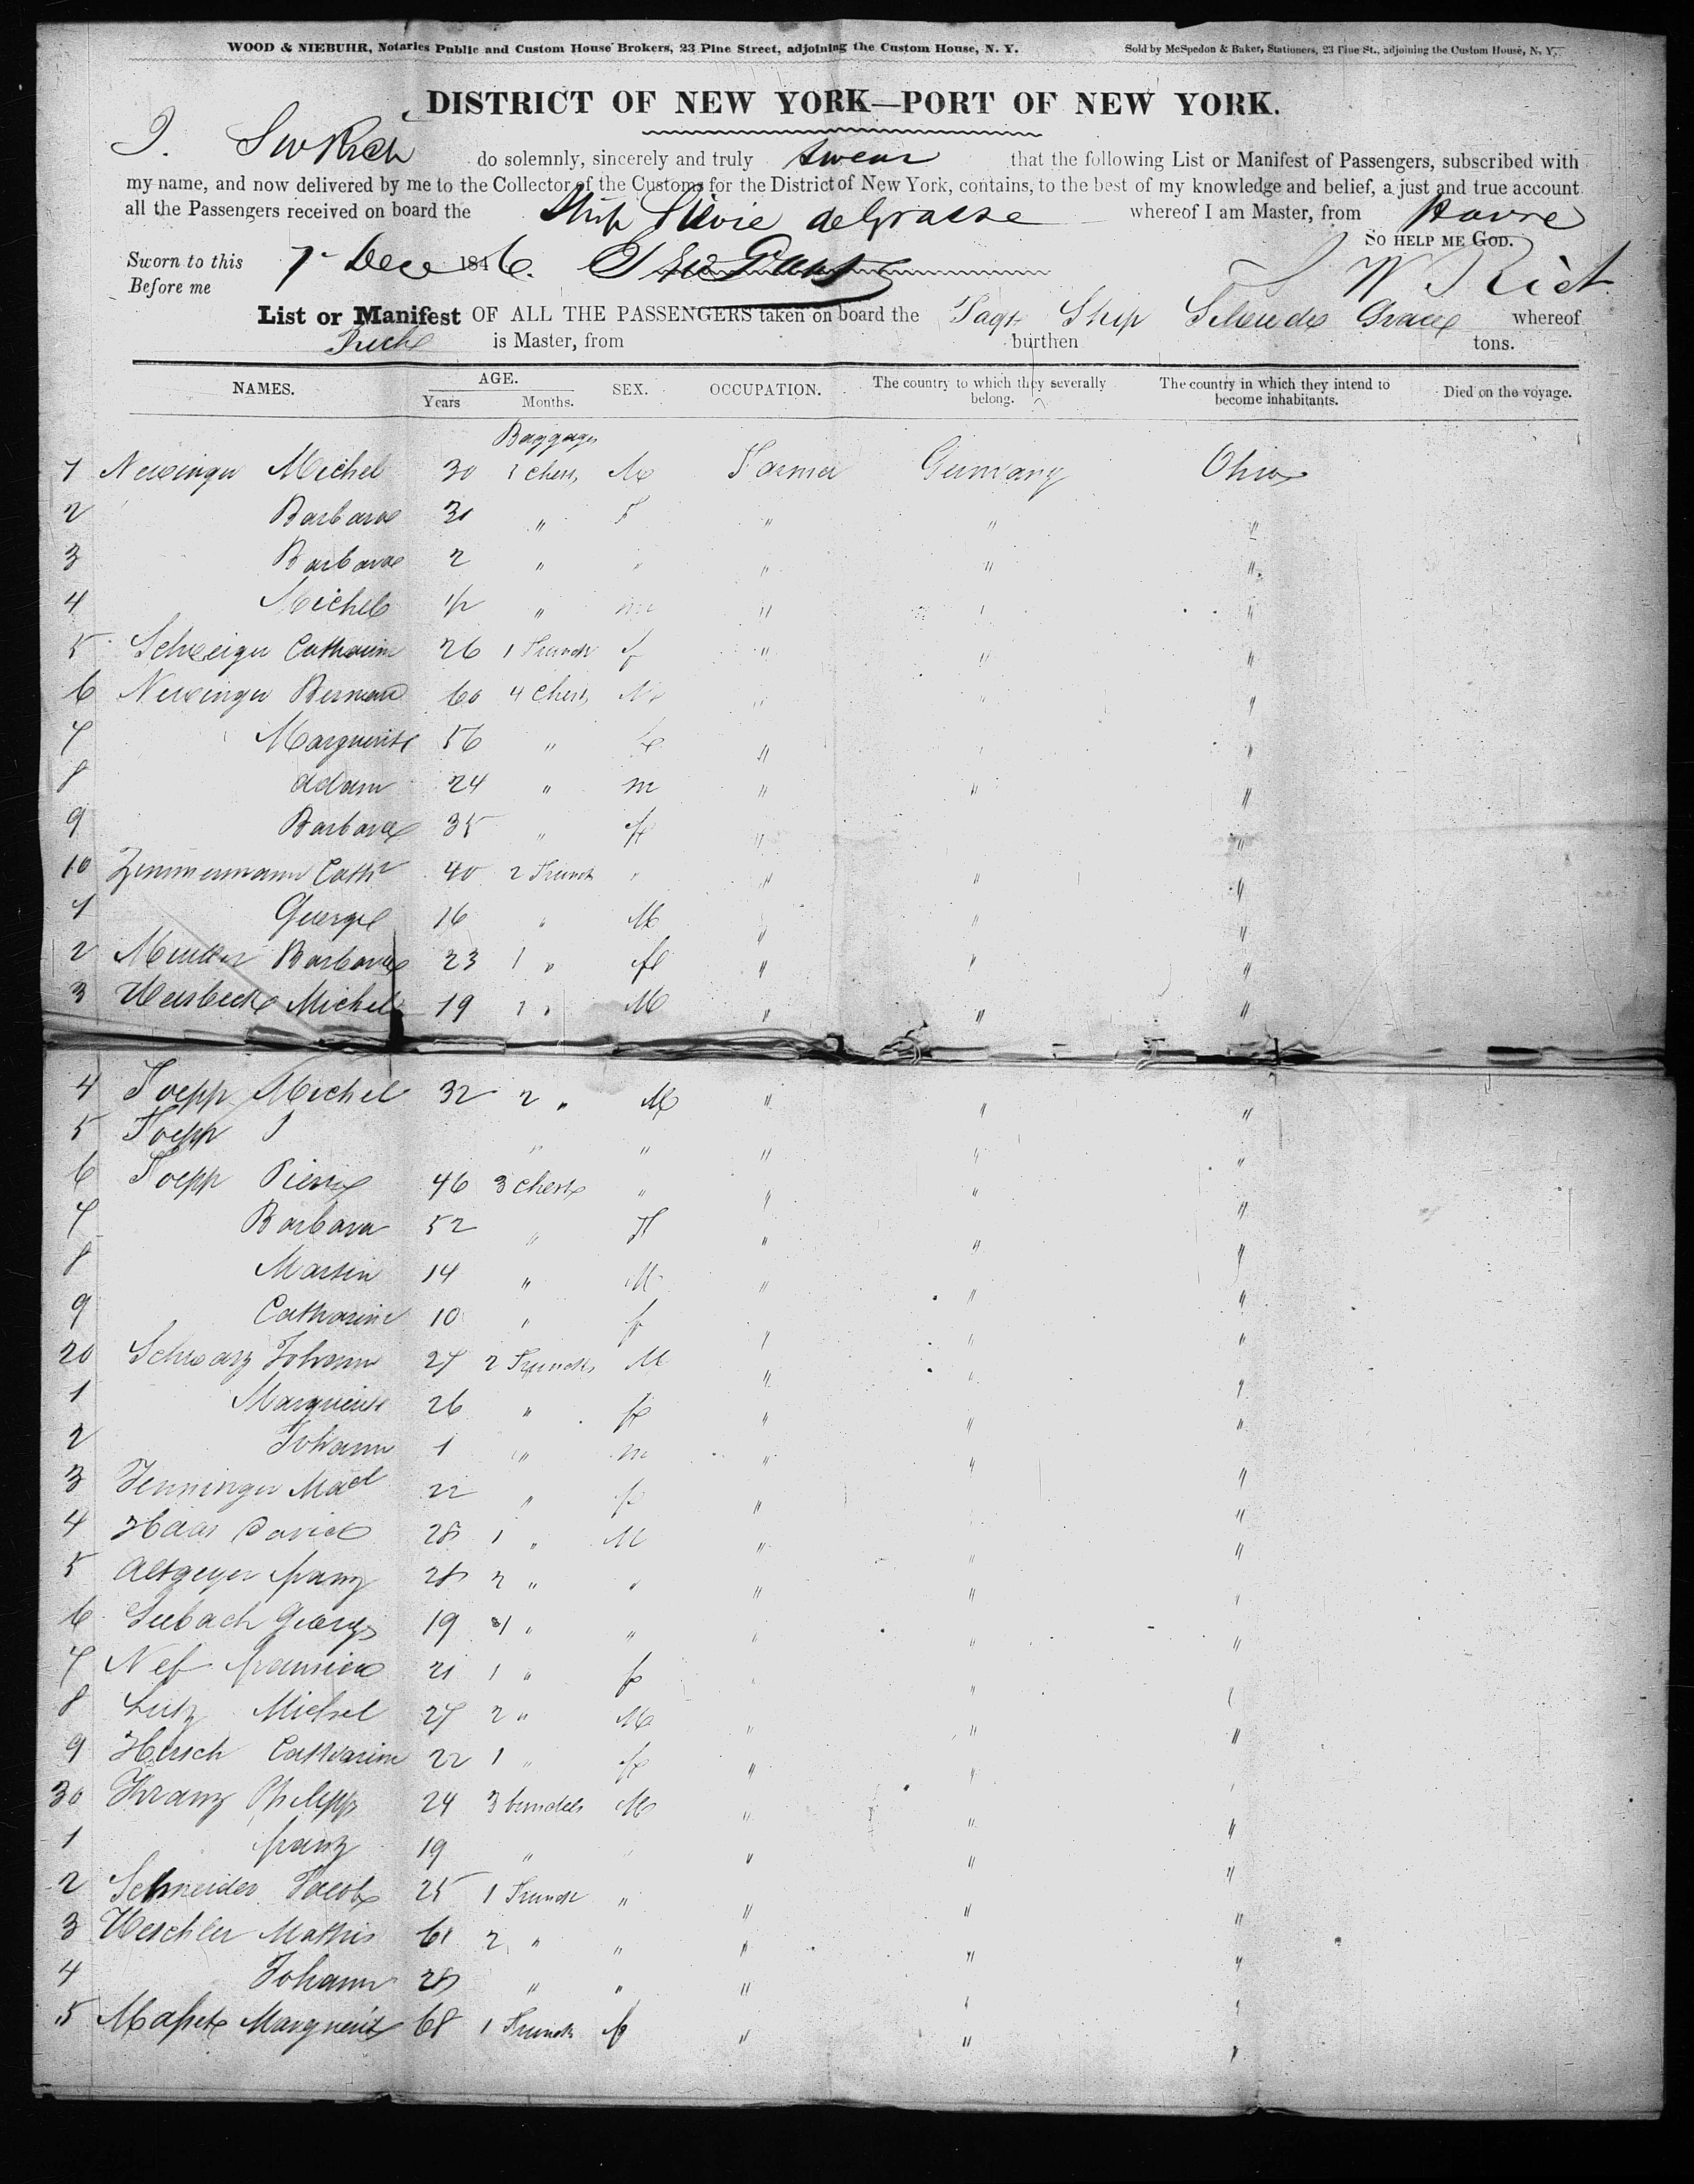 WOOD & NIEBUHR, Notaries Public and Custom House Brokers, 23 Pine Street, adjoining the Custom House, N. Y. Sold by McSpedon & Baker, Stationers, 23 Pine St., adjoining the Custom House, N. Y.
DISTRICT OF NEW YORK—PORT OF NEW YORK.
I. S W Rich do solemnly, sincerely and truly swear that the following List or Manifest of Passengers, subscribed with
my name, and now delivered by me to the Collector of the Customs for the District of New York, contains, to the best of my knowledge and belief, a just and true account
all the Passengers received on board the Ship Silvie deGrasse whereof I am Master, from Havre
SO HELP ME GOD.
Sworn to this 7 Dec 1846. S W Rich
Before me
List or Manifest OF ALL THE PASSENGERS taken on board the Paqt Ship Grace whereof
Rich is Master, from burthen tons.
NAMES. AGE. SEX. OCCUPATION. The country to which they severally belong. The country in which they intend to become inhabitants. Died on the voyage.
Years Months.
Baggage
1 Michel 30 1 chest M Farmer Germany Ohio
2 Barbara 31 " F " " "
3 Barbara 2 " " " " "
4 Michel 1/2 " m " " "
5 Catharine 26 1 Trunck f " " "
6 60 4 chest M " " "
7 Marguerite 56 " f " " "
8 Adam 24 " m " " "
9 Barbara 35 " f " " "
10 Zimmermann Cathr 40 2 Trunck " " " "
1 George 16 " M " " "
2 Barbara 23 1 " f " " "
3 Michel 19 1 " M " " "
4 Toepp Michel 32 2 " M " " "
5 Toepp J " " " " "
6 Toepp Pierre 46 3 chest " " " "
7 Barbara 52 " F " " "
8 Martin 14 " M " " "
9 Catharine 10 " f " " "
20 Schwarz Johann 27 2 Truncks M " " "
1 Marguerite 26 " f " " "
2 Johann 1 " m " " "
3 22 " f " " "
4 Haas David 28 1 " M " " "
5 Altgeyer franz 28 2 " " " " "
6 Seebach Georg 19 1 " " " " "
7 Nef 21 1 " f " " "
8 Lutz Michel 27 2 " M " " "
9 Hirsch Catharine 22 1 " f " " "
30 Kranz Philipp 24 3 bundels M " " "
1 franz 19 " " " " "
2 Schneider Jacob 25 1 Trunck " " " "
3 Weschler Mathis 61 2 " " " " "
4 Johann 28 " " " " "
5 Marguerite 68 1 Trunck f " " "